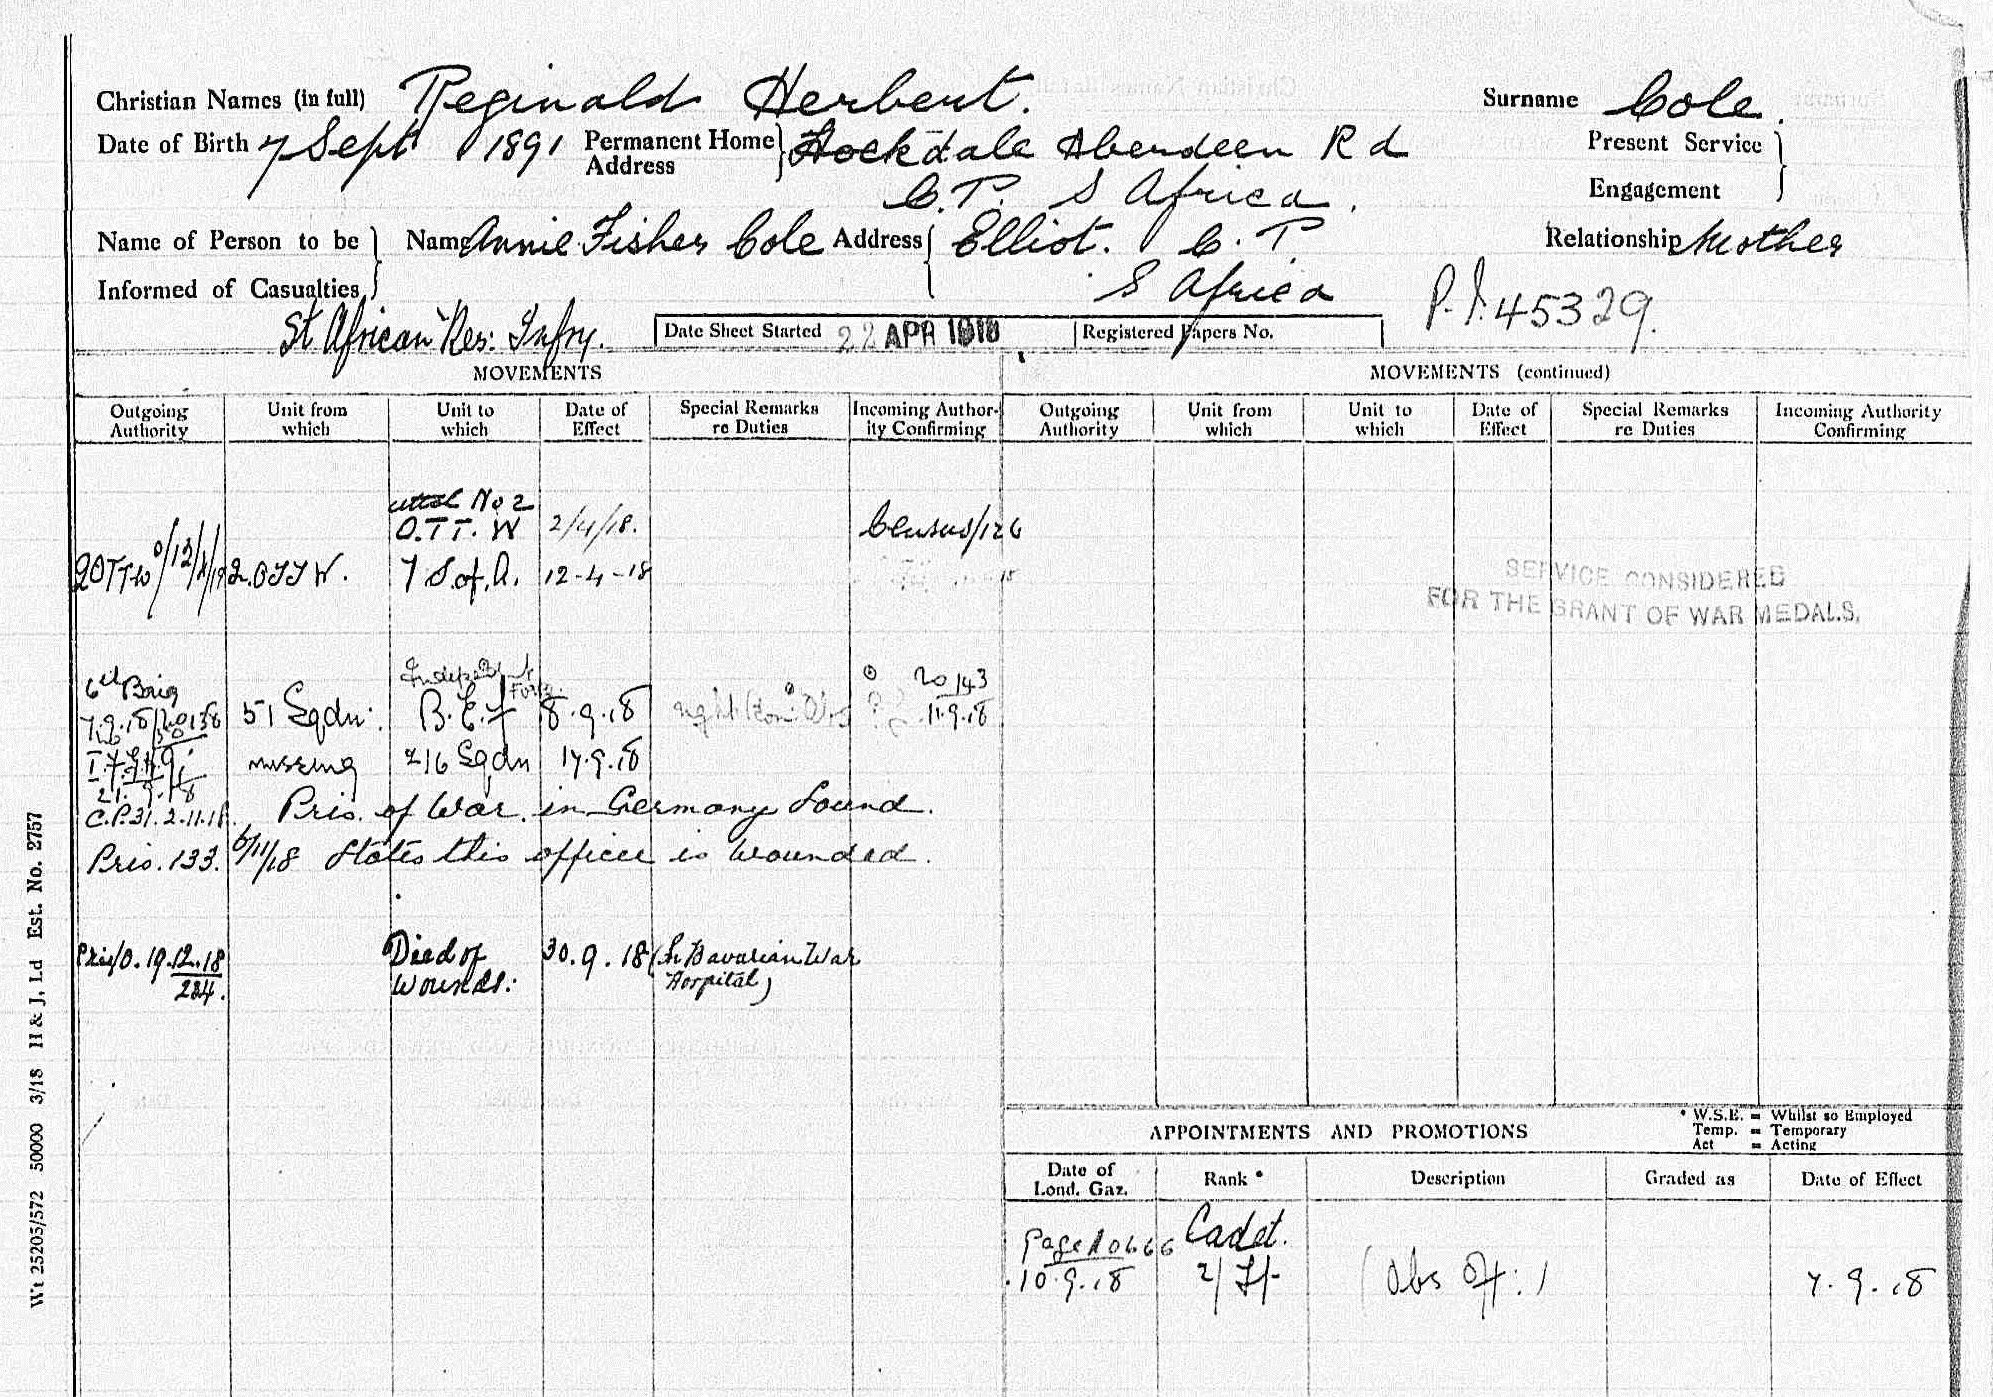 Christian Names (in full) Reginald Herbert. Surname Cole.
Date of Birth 7 Sept 1891 Permanent Home Address Aberdeen Rd Present Service
C.P. S Africa. Engagement
Name of Person to be Informed of Casualties Name Annie Fisher Cole Address Elliot. C. P. Relationship Mother
S Africa
P. I. 45329.
African Res: Infry. Date Sheet Started 22 APR 1918 Registered Papers No.
MOVEMENTS MOVEMENTS (continued)
Outgoing Authority Unit from which Unit to which Date of Effect Special Remarks re Duties Incoming Author-ity Confirming Outgoing Authority Unit from which Unit to which Date of Effect Special Remarks re Duties Incoming Authority Confirming
No 2
O.T.T. W 2/4/18. Census/126
2.OTTW. 1 S.of.A. 12-4-18
SERVICE CONSIDERED
FOR THE GRANT OF WAR MEDALS.
6th Brig Indep
Force 20143
7.9.18 51 Sqdn. B.E.F 8.9.18 11.9.18
missing 216 Sqdn 17.9.18
21.9.18
C.P.31.2.11.18. Pris. of War. in Germany Sound.
Pris. 133. 6/11/18 States this officer is wounded.
19.12.18 Died of 30.9.18 (In Bavarian War
234. wounds: Hospital)
APPOINTMENTS AND PROMOTIONS
* W.S.E. = Whilst so Employed
Temp. = Temporary
Act = Acting
Date of Lond. Gaz. Rank * Description Graded as Date of Effect
Cadet.
Page 10666
10.9.18 2/Lt (Obs Off:) 7.9.18
Wt 25205/572 50000 3/18 H & J, Ld Est. No. 2757